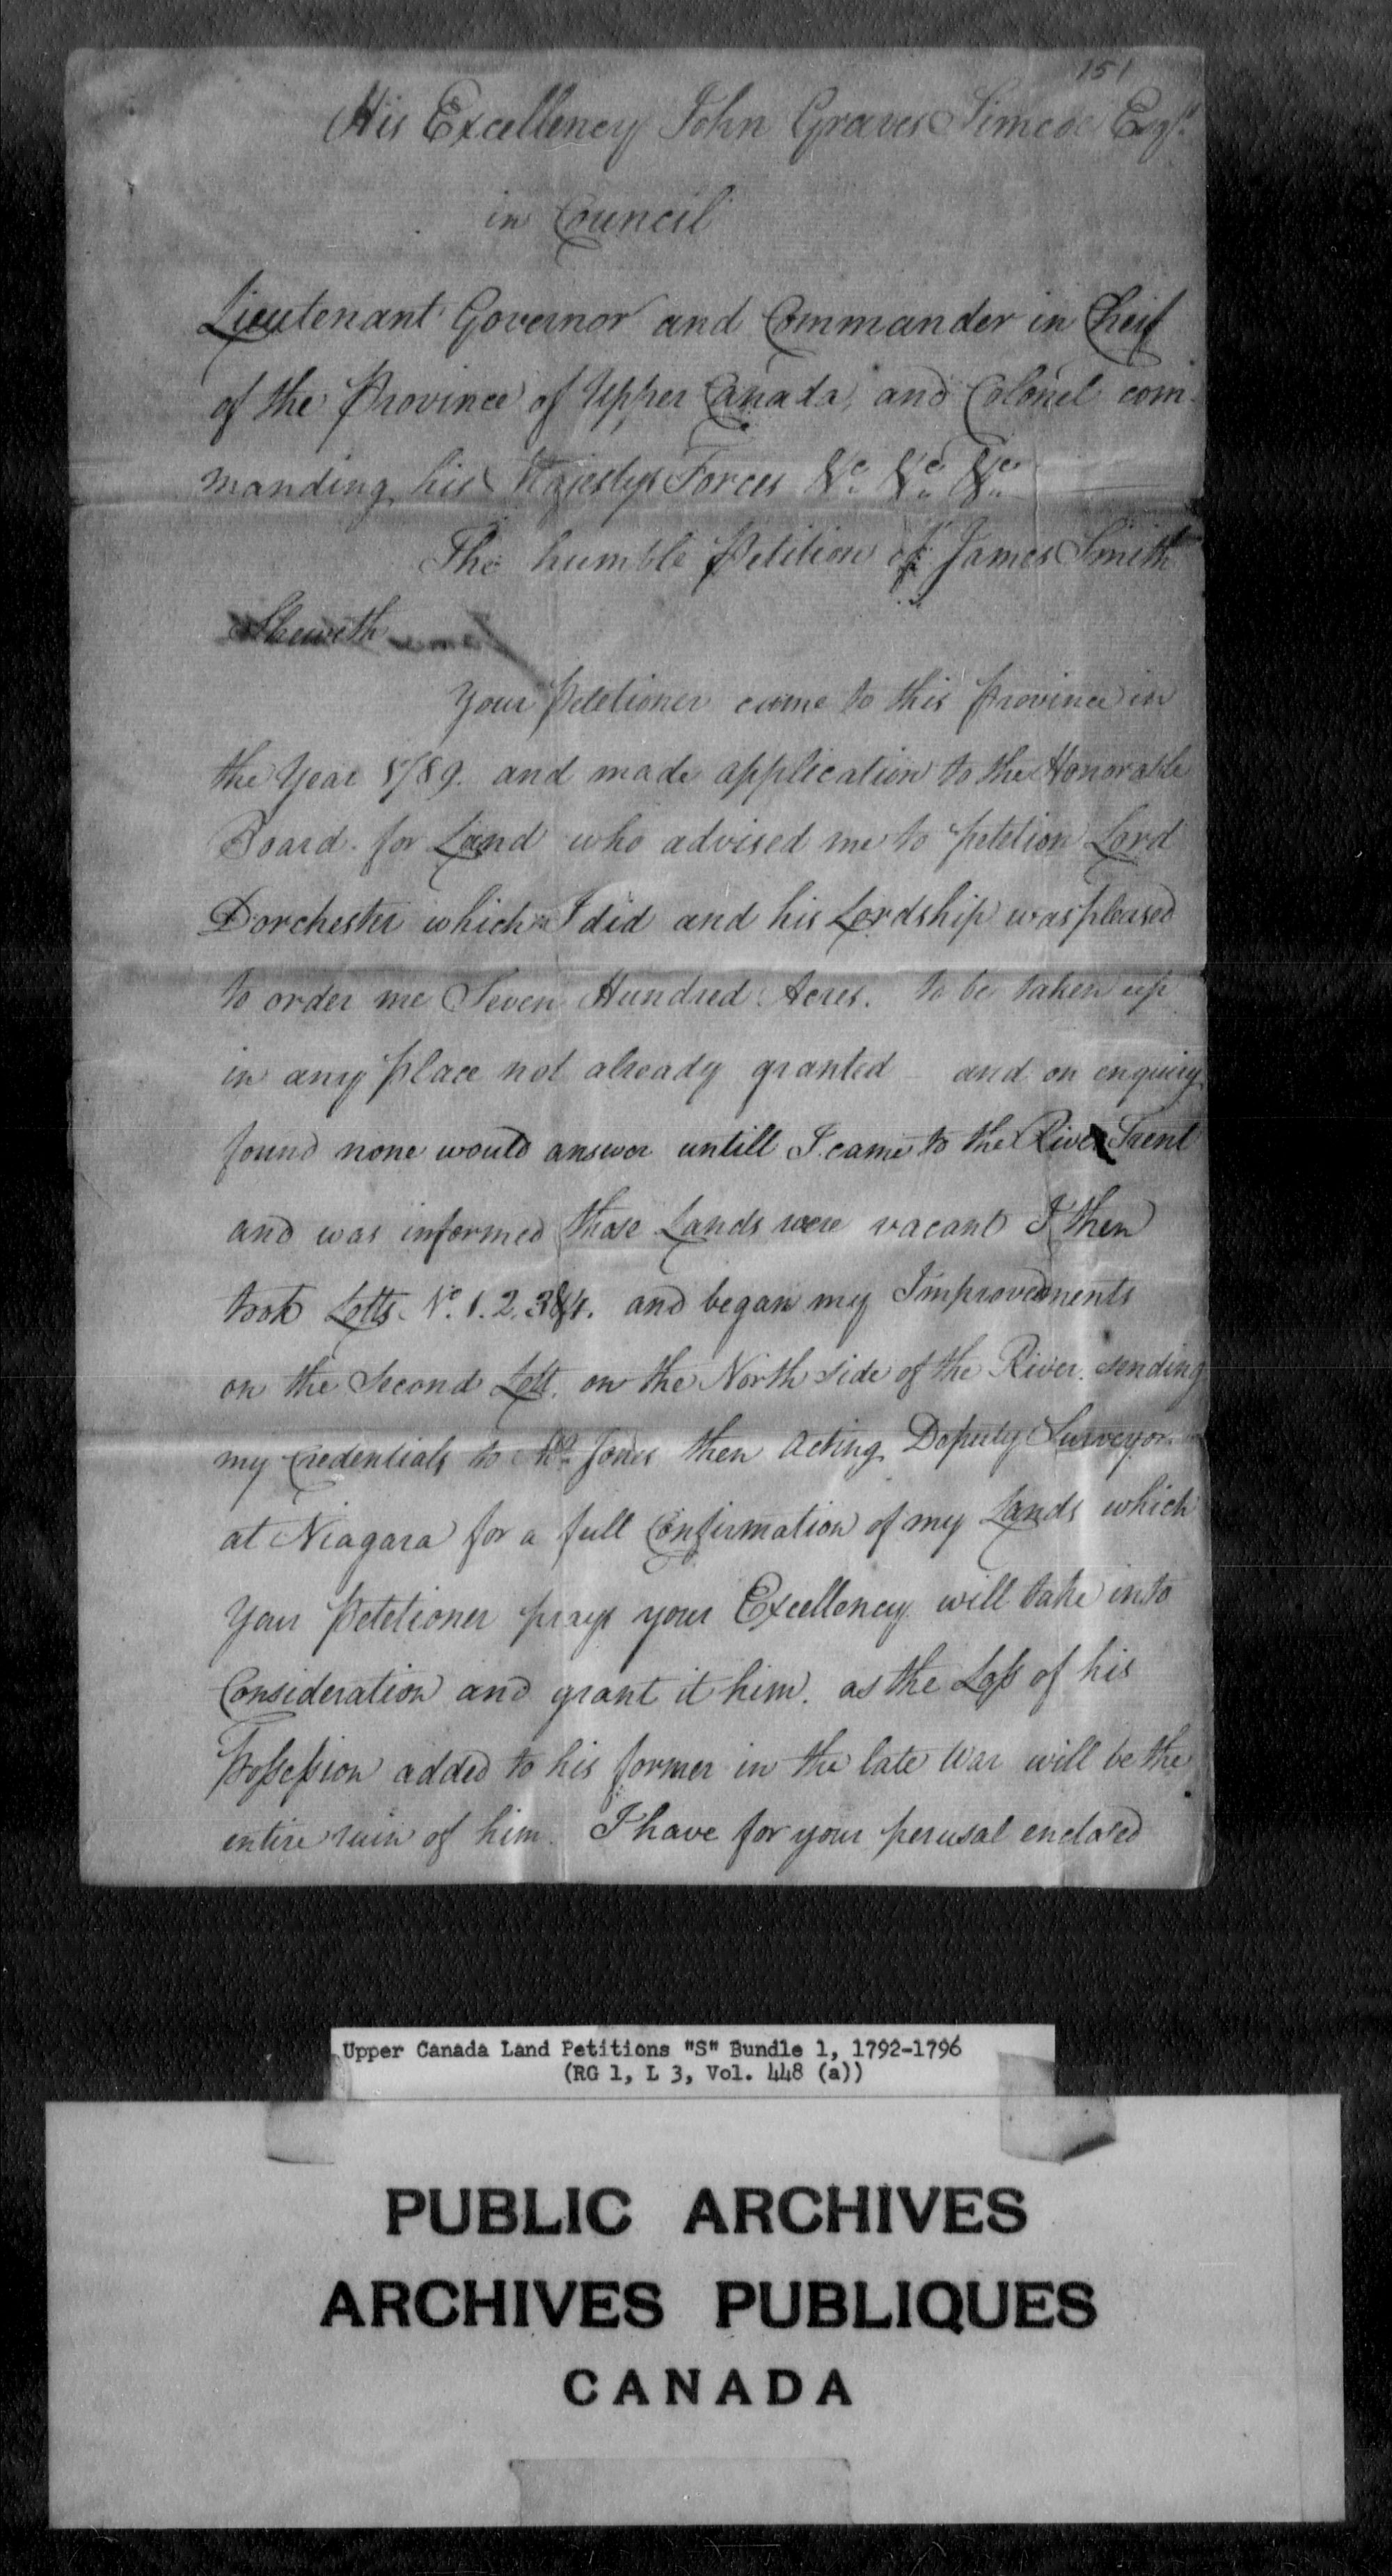 151
His Excellency John Graves Simcoe Esqr.
in Council
Lieutenant Governor and Commander in Cheif
of the Province of Upper Canada, and Colonel com-
manding his Majestys Forces &c. &c. &c.
The humble Petition of James Smith
Sheweth
Your Petetioner came to this Province in
the Year 1789. and made application to the Honorable
Board for Land who advised me to petetion Lord
Dorchester which I did and his Lordship was pleased
to order me Seven Hundred Acres. to be taken up
in any place not already granted – and on enquiry
found none would answer untill I came to the River Trent
and was informed those Lands were vacant I then
took Lotts No. 1. 2. 3 & 4. and began my Improvements
on the Second Lott. on the North side of the River. sending
my Credentials to Mr. Jones then Acting Deputy Surveyor
at Niagara for a full Confirmation of my Lands which
Your Petetioner prays your Excellency will take into
Consideration and grant it him. as the Loss of his
Possession added to his former in the late War will be the
entire ruin of him. I have for your perusal enclosed
Upper Canada Land Petitions "S" Bundle 1, 1792-1796
(RG 1, L 3, Vol. 448 (a))
PUBLIC ARCHIVES
ARCHIVES PUBLIQUES
CANADA